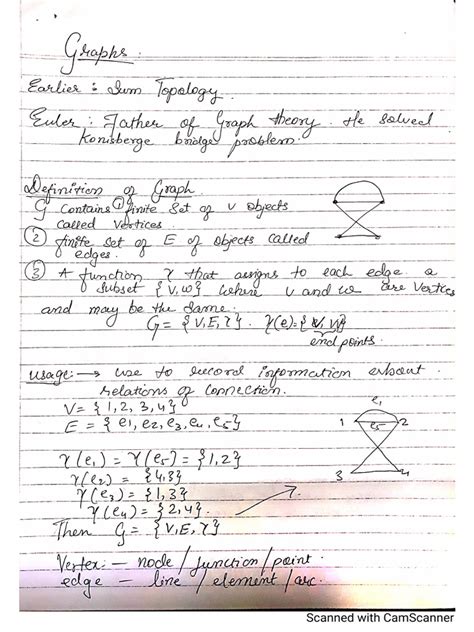 Graphs.
Earlier : Sum Topology.
Euler : Father of Graph theory. He solved
Konisberge bridge problem.
Definition of Graph.
G contains ① finite set of V objects
called Vertices.
② finite set of E of objects called
edges.
③ A function γ that assigns to each edge a
subset {V,W} where v and w are vertices
and may be the same.
G = {V,E,γ}. γ(e) = {V,W}
end points.
usage: → use to record information about
relations of connection.
V = {1,2,3,4}
E = {e1, e2, e3, e4, e5}
e1
1 e5 2
3 4
γ(e1) = γ(e5) = {1,2}
γ(e2) = {4,3}
γ(e3) = {1,3}
γ(e4) = {2,4}.
Then G = {V,E,γ}
Vertex: - node / function / point.
edge - line / element / arc.
Scanned with CamScanner